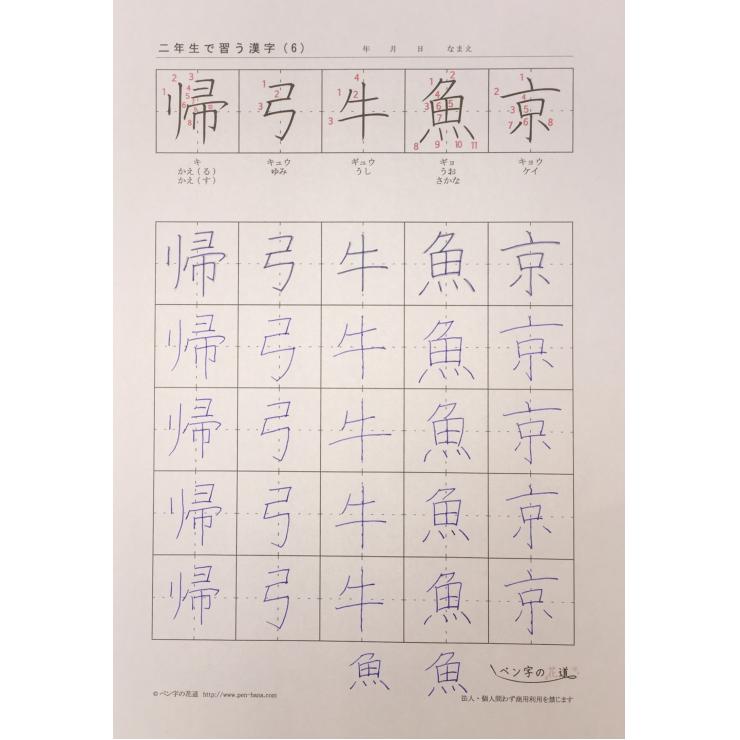 二年生で習う漢字(6) 年 月 日 なまえ
帰 弓 牛 魚 京
キ キュウ ギュウ ギョ キョウ
かえ(る) ゆみ うし うお ケイ
かえ(す) さかな
帰 弓 牛 魚 京
帰 弓 牛 魚 京
帰 弓 牛 魚 京
帰 弓 牛 魚 京
帰 弓 牛 魚 京
魚 魚 ペン字の花道
© ペン字の花道 http://www.pen-hana.com 法人・個人問わず商用利用を禁じます